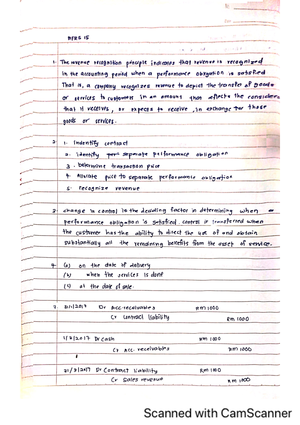 MFRS 15
1. The revenue recognition principle indicates that revenue is recognized
in the accounting period when a performance obligation is satisfied
That is, a company recognizes revenue to depict the transfer of goods
or services to customers in an amount that reflects the consideration
that it receives, or expects to receive, in exchange for those
goods or services.
2. 1. Indentify contract
2. identify separate performance obligation
3. Determine transaction price
4. Allocate price to separate performance obligation
5. recognize revenue
3. change in control is the deciding factor in determining when a
performance obligation is satisfied control is transferred when
the customer has the ability to direct the use of and obtain
substantially all the remaining benefits from the asset of service.
4. (a) on the date of delivery
(b) when the services is done
(c) at the date of sale
Dr Acc. receivables RM 1000
Cr Contract liability RM 1000
Dr Cash RM 1000
Cr Acc. receivables RM 1000
Dr Contract liability RM 1000
Cr Sales revenue RM 1000
Scanned with CamScanner